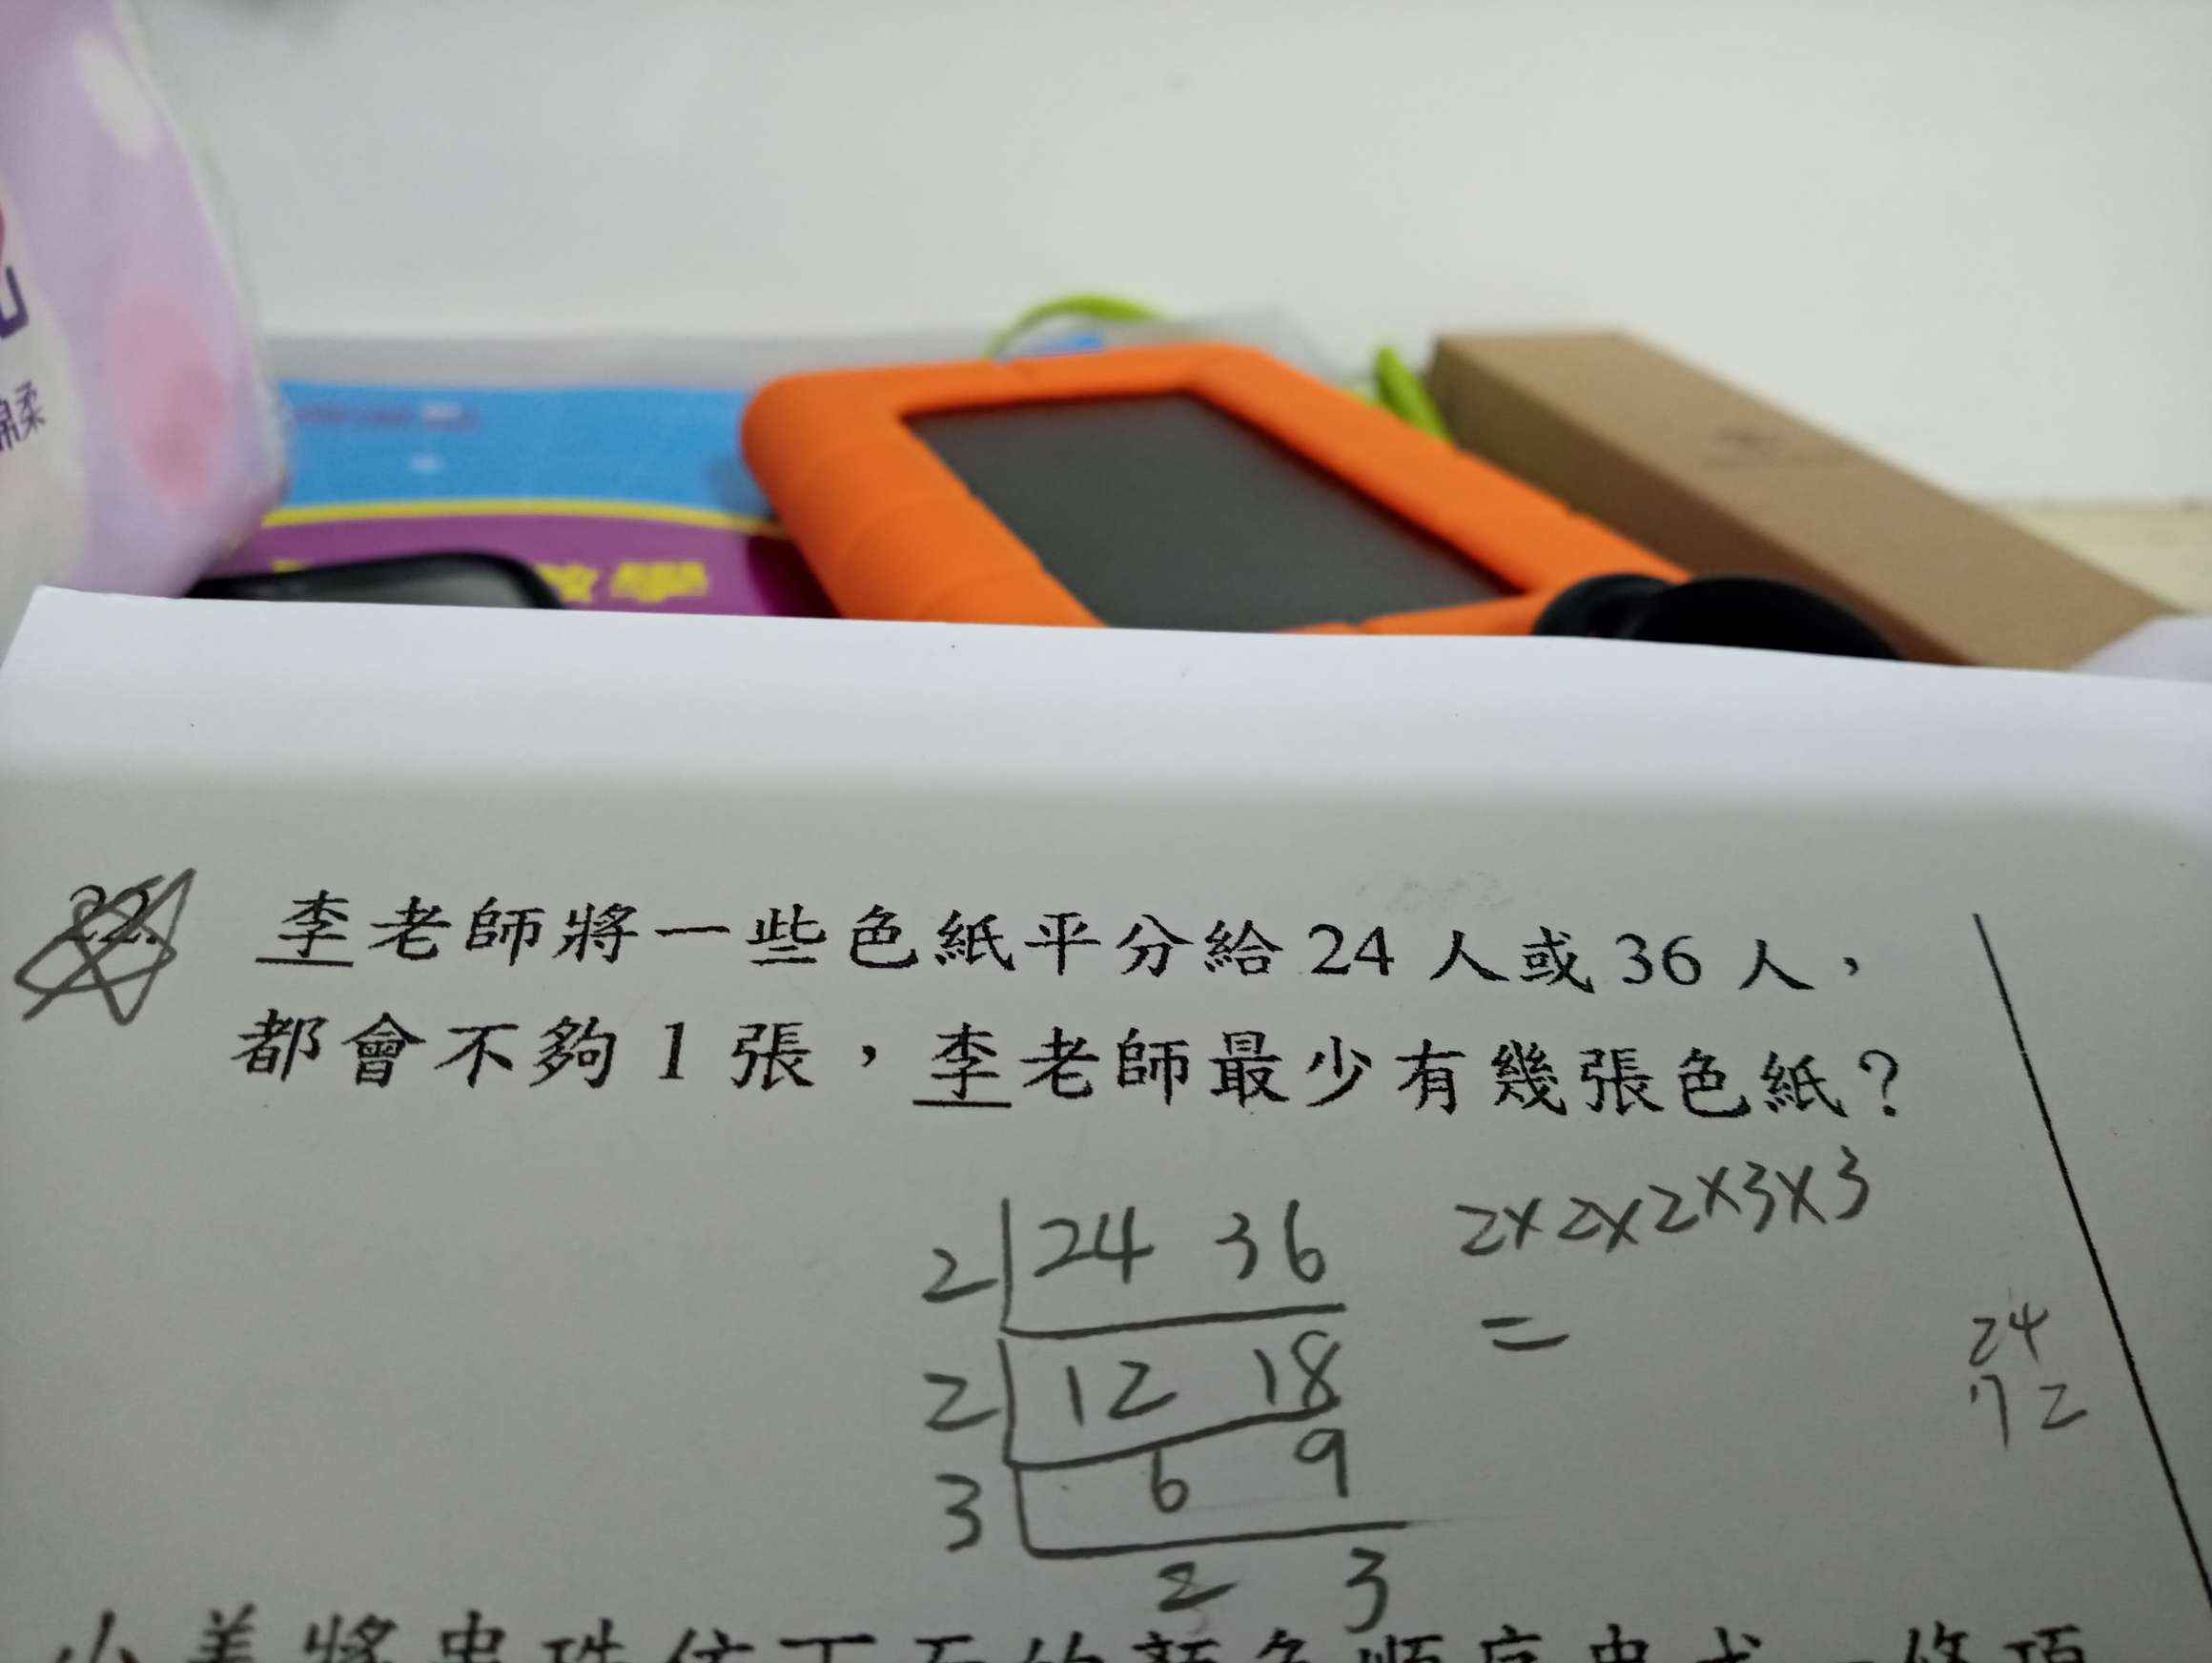 綿柔
數學
22. 李老師將一些色紙平分給 24 人或 36 人，
都會不夠 1 張，李老師最少有幾張色紙？
2 24 36
2 12 18
3 6 9
2 3
2×2×2×3×3
=
24
72